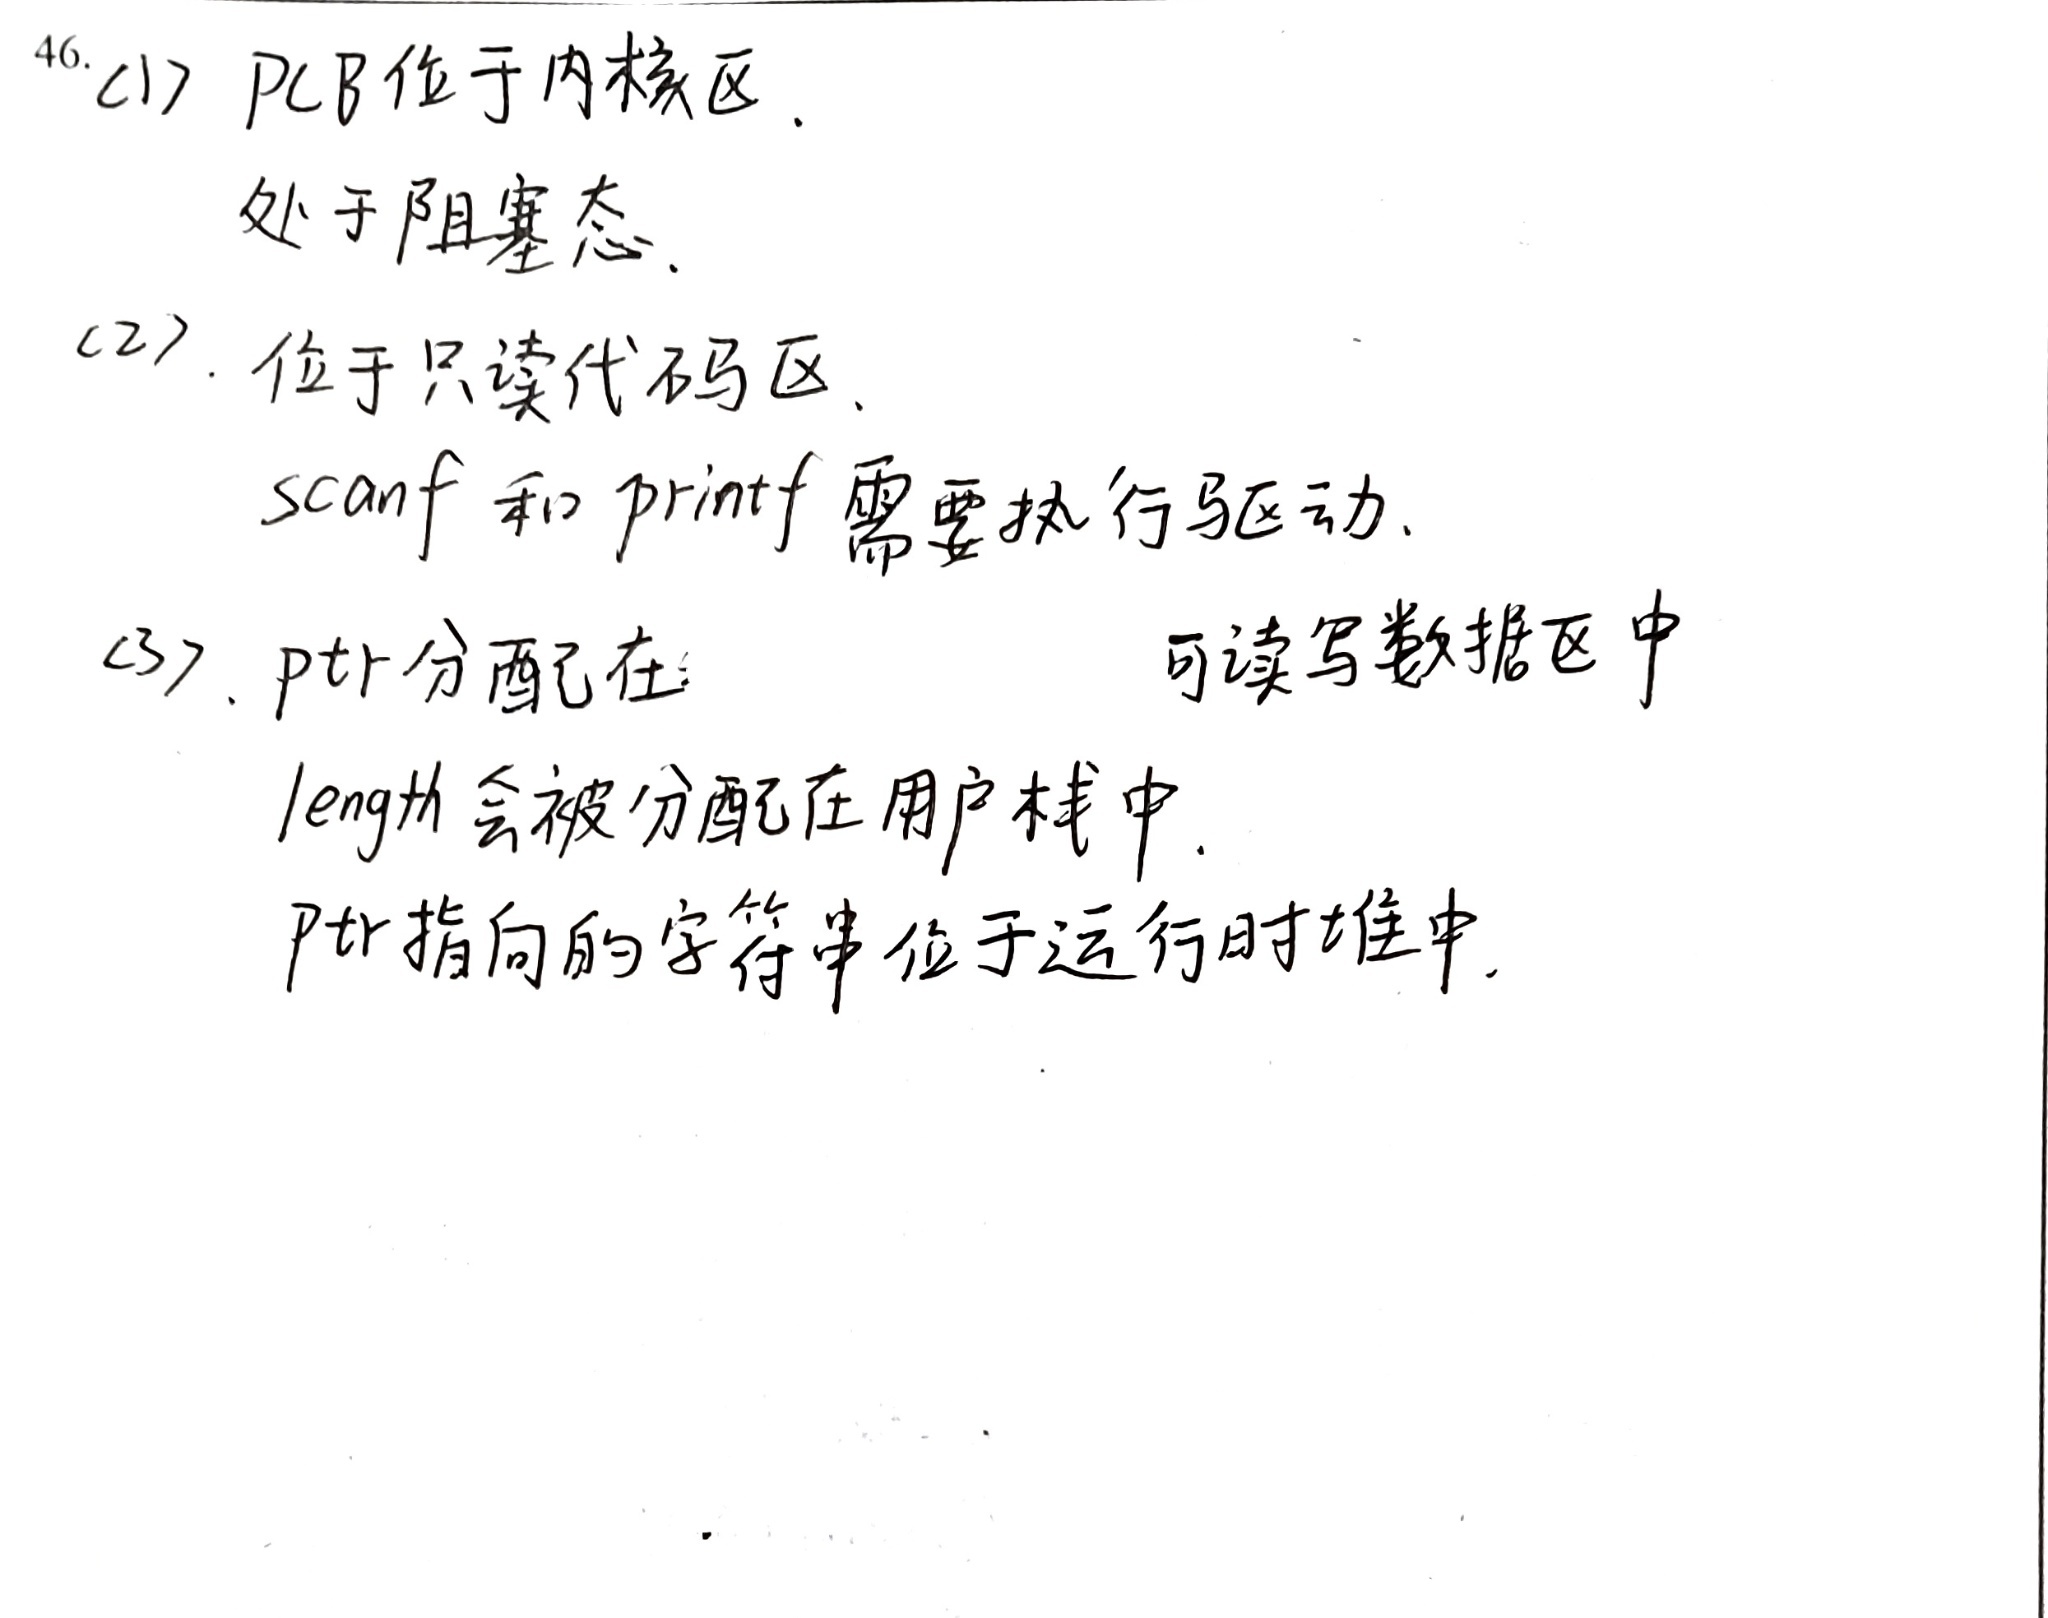 46. (1) PCB位于内核区.
处于阻塞态.
(2). 位于只读代码区.
scanf 和 printf 需要执行驱动.
(3). ptr分配在: 可读写数据区中
length会被分配在用户栈中.
ptr指向的字符串位于运行时堆中.